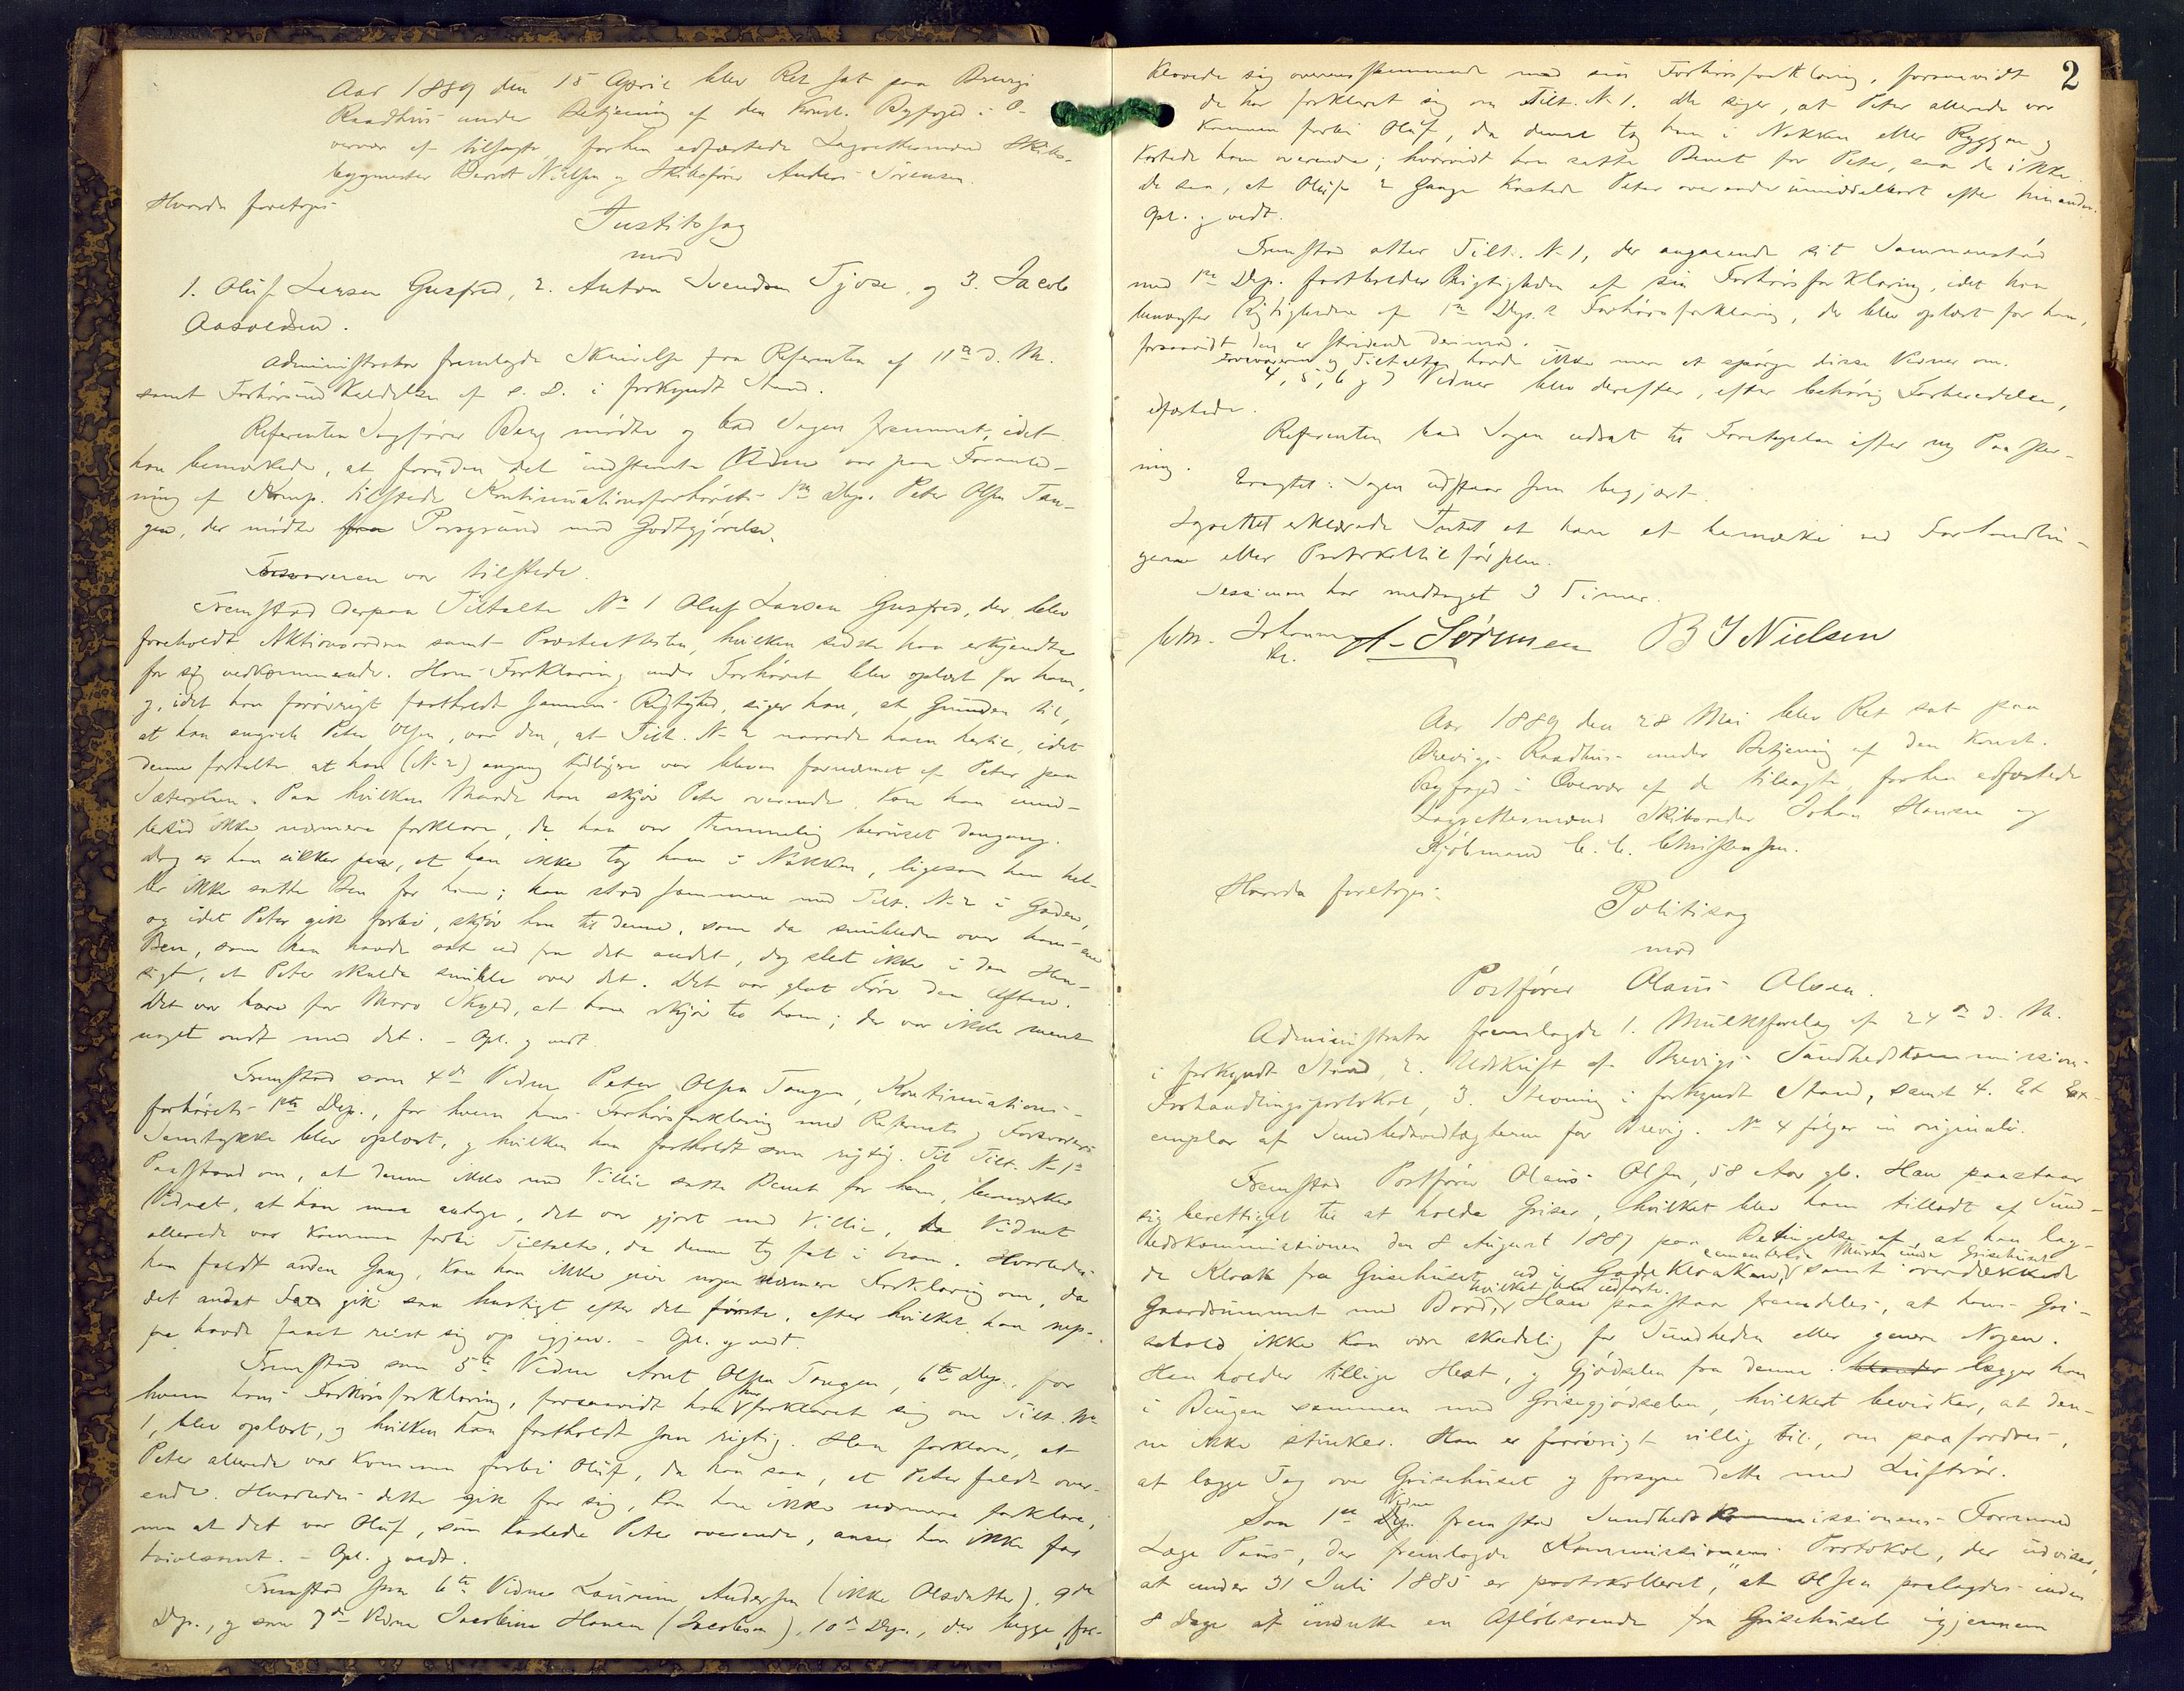 Aar 1889 den 15 April blev Ret sat paa Brevigs
Raadhus under Betjening af den konst. Byfoged i O-
vervær af tilsagte, forhen edfæstede Lagrettesmænd Skibs-
bygmester Berndt Nielsen og Skibsfører Anders Sørensen.
Hvorda foretoges
Justitssag
mod
1. Oluf Larsen Gusfred, 2. Anton Svendsen Tjose, og 3. Jacob
Aasoldsen.
Administrator fremlagde Skrivelse fra Referenten af 11te d. M.
samt Forhørsindkaldelse af s. D. i forkyndt Stand.
Referenten Sagfører Berg mødte og bad Sagen fremmet, idet
han bemærkede, at foruden det indstævnte Vidne var paa Foranled-
ning af Komp. tilstede Kontinuationsforhørets 1ste Dep. Peter Olsen Tan-
gen, der mødte fra Porsgrund mod Godtgjørelse.
Forsvareren var tilstede.
Fremstod derpaa Tiltalte No 1 Oluf Larsen Gusfred, der blev
foreholdt Aktionsordren samt Præsteattesten, hvilken sidste han erkjendte
for sig vedkommende. Hans Forklaring under Forhøret blev oplæst for ham,
og, idet han forøvrigt fastholdt sammes Rigtighed, siger han, at Grunden til,
at han angreb Peter Olsen, var den, at Tilt. No 2 narrede ham hertil, idet
denne fortalte at han (No 2) engang tidligere var bleven fornærmet af Peter paa
Sæterøen. Paa hvilken Maade han skjøv Peter overende, kan han imid-
lertid ikke nærmere forklare, da han var temmelig beruset dengang.
Dog er han sikker paa, at han ikke tog ham i Nakken, ligesom han hel-
ler ikke satte Ben for ham; han stod sammen med Tilt. No 2 i Gaden,
og idet Peter gik forbi, skjøv han til denne, som da snublede over hans ene
Ben, som han havde sat ud fra det andet, dog slet ikke i den Hen-
sigt, at Peter skulde snuble over det. Det var glat Føre den Aften.
Det var bare for Moro Skyld, at han skjøv til ham; der var ikke ment
noget ondt med det. – Opl. og vedt.
Fremstod som 4de Vidne Peter Olsen Tangen, Kontinuations-
forhørets 1ste Dep., for hvem hans Forhørsforklaring med Referents og Forsvarers
Samtykke blev oplæst, og hvilken han fastholdt som rigtig. Til Tilt. No 1s
Paastand om, at denne ikke med Villie satte Benet for ham, bemærker
Vidnet, at han maa antage, det var gjort med Villie, da Vidnet
allerede var kommen forbi Tiltalte, da denne tog fat i ham. Hvorledes
han faldt anden Gang, kan han ikke give nogen nærmere Forklaring om, da
det andet Fald gik saa hurtigt efter det første, efter hvilket han nep-
pe havde faaet reist sig op igjen. – Opl. og vedt.
Fremstod som 5te Vidne Arnt Olsen Tangen, 6te Dep., for
hvem hans Forhørsforklaring, forsaavidt han har forklaret sig om Tilt. No
1, blev oplæst, og hvilken han fastholdt som rigtig. Han forklarer, at
Peter allerede var kommen forbi Oluf, da han saa, at Peter faldt over-
ende. Hvorledes dette gik for sig, kan han ikke nærmere forklare,
men at det var Oluf, som kastede Peter overende, anser han ikke for
tvivlsomt. – Opl. og vedt.
Fremstod som 6te Vidne Laurine Andersen (ikke Olsdatter), 9de
Dep., og som 7de Vidne Jacobine Hansen (Jacobsen), 10de Dep., der begge for-
2
klarede sig overensstemmende med sin Forhørsforklaring, forsaavidt
de har forklaret sig om Tilt. No 1. De siger, at Peter allerede var
kommen forbi Oluf, da denne tog ham i Nakken eller Ryggen og
kastede ham overende; hvorvidt han satte Benet for Peter, saa de ikke.
De saa, at Oluf 2 Gange kastede Peter overende umiddelbart efter hinanden.
Opl. og vedt.
Fremstod atter Tilt. No 1, der angaaende sit Sammenstød
med 1ste Dep. fastholder Rigtigheden af sin Forhørsforklaring, idet han
benægter Rigtigheden af 1ste Dep.s Forhørsforklaring, der blev oplæst for ham,
forsaavidt den er stridende derimod.
Forsvareren og Tiltalte havde ikke mer at spørge disse Vidner om.
4, 5, 6 og 7 Vidner blev derefter, efter behørig Forberedelse,
edfæstede.
Referenten bad Sagen udsat til Foretagelse efter ny Paaster-
ning.
Eragtet: Sagen udstaar som begjært.
Lagrettet erklærede Intet at have at bemærke ved Forhandlin-
gerne eller Protokoltilførslen.
Sessionen har medtaget 3 Timer.
A. Sørensen B J Nielsen
Aar 1889 den 28 Mai blev Ret sat paa
Brevigs Raadhus under Betjening af den konst.
Byfoged i Overvær af de tilsagte, forhen edfæstede
Lagrettesmænd Skibsreder Johan Hansen og
Kjøbmand C. C. Christensen.
Hvorda foretoges:
Politisag
mod
Postfører Olaus Olsen.
Administrator fremlagde 1. Mulktsforelæg af 24de d. M.
i forkyndt Stand, 2. Udskrift af Brevigs Sundhedskommissions
Forhandlingsprotokol, 3. Stevning i forkyndt Stand, samt 4. Et Ex-
emplar af Sundhedsvedtægterne for Brevig. No 4 følger in originali.
Fremstod Postfører Olaus Olsen, 58 Aar gl. Han paastaar
sig berettiget til at holde Griser, hvilket blev ham tilladt af Sund-
hedskommissionen den 8 August 1887 paa Betingelse af, at han lag-
cementerede Muren under Grisehuset
de Kloak fra Grisehuset ud i Gadekloaken, samt overdækkede
hvilket blev udført.
Gaardsrummet med Bord, Han paastaar fremdeles, at hans Gri-
sehold ikke kan være skadelig for Sundheden eller genere Nogen.
Han holder tillige Hest, og Gjødselen fra denne blander lægger han
i Bingen sammen med Grisegjødselen, hvilket bevirker, at den-
ne ikke stinker. Han er forøvrigt villig til, om paafordres,
at lægge Tag over Grisehuset og forsyne dette med Luftrør.
Vidne
Som 1ste Dep. fremstod Sundhedskommissionens Formand
Læge Paus, der fremlagde Kommissionens Protokol, der udviser,
at under 31 Juli 1885 er protokolleret, "at Olsen paalagdes inden
8 Dage at indrette en Afløbsrende fra Grisehuset igjennem